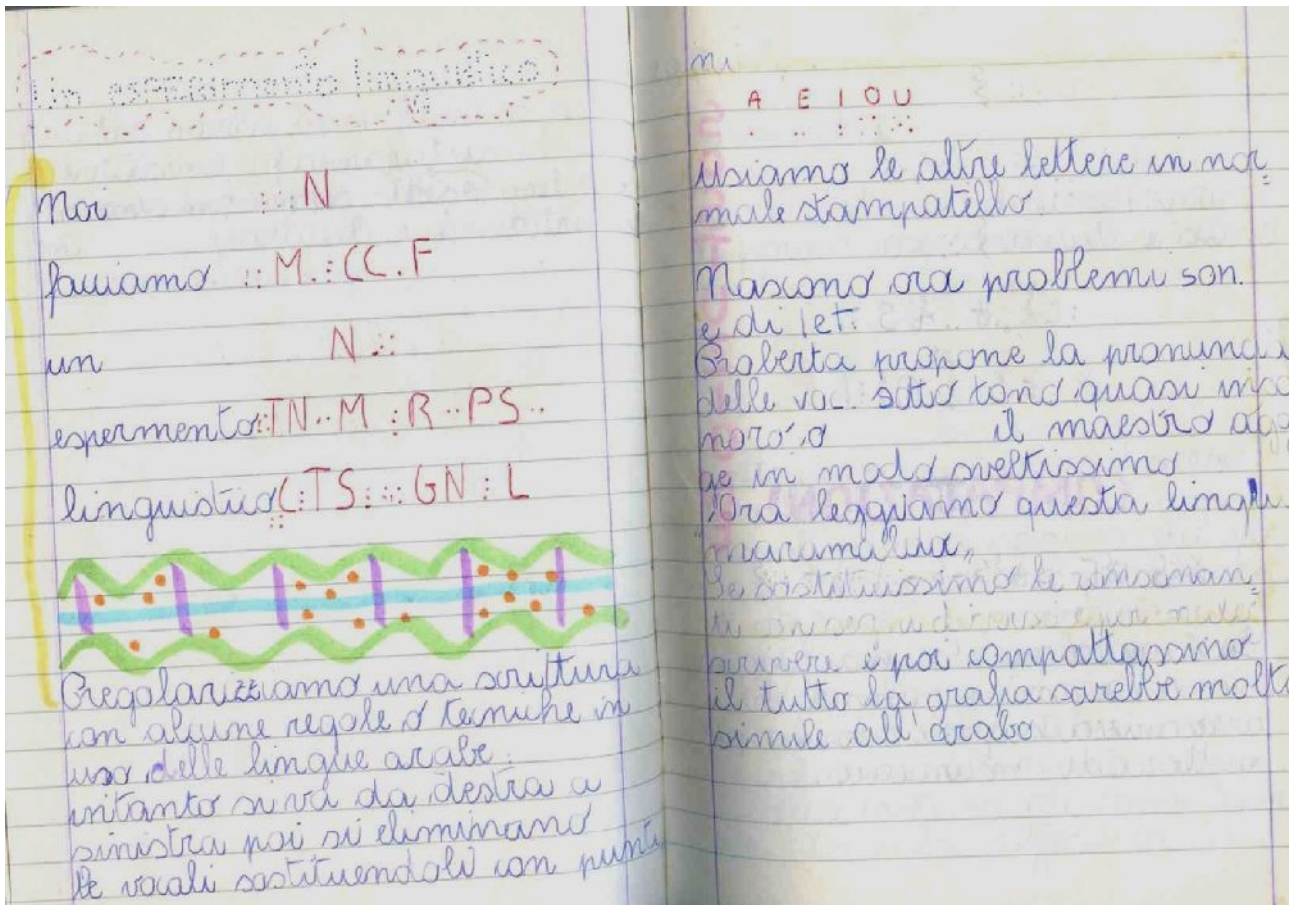 Un esperimento linguistico
Noi : : N
facciamo :: M . : CC . F
un N ::
espermento :: TN .. M : R .. PS ..
linguistico C : TS : :: GN : L
Regolarizziamo una scrittura
con alcune regole o tecniche in
uso delle lingue arabe.
intanto si va da destra a
sinistra poi si eliminano
le vocali sostituendoli con punti
ni
A E I O U
. .. : :: ::
Usiamo le altre lettere in nor=
male stampatello.
Nascono ora problemi son.
e di let.
Roberta propone la pronunci
delle voc. sotto tono quasi
o il maestro
ge in modo sveltissimo
"Ora leggiamo questa lingu
"
Se sostituissimo le consonan=
ti
scrivere e poi compattassimo
il tutto la grafia sarebbe molto
simile all'arabo